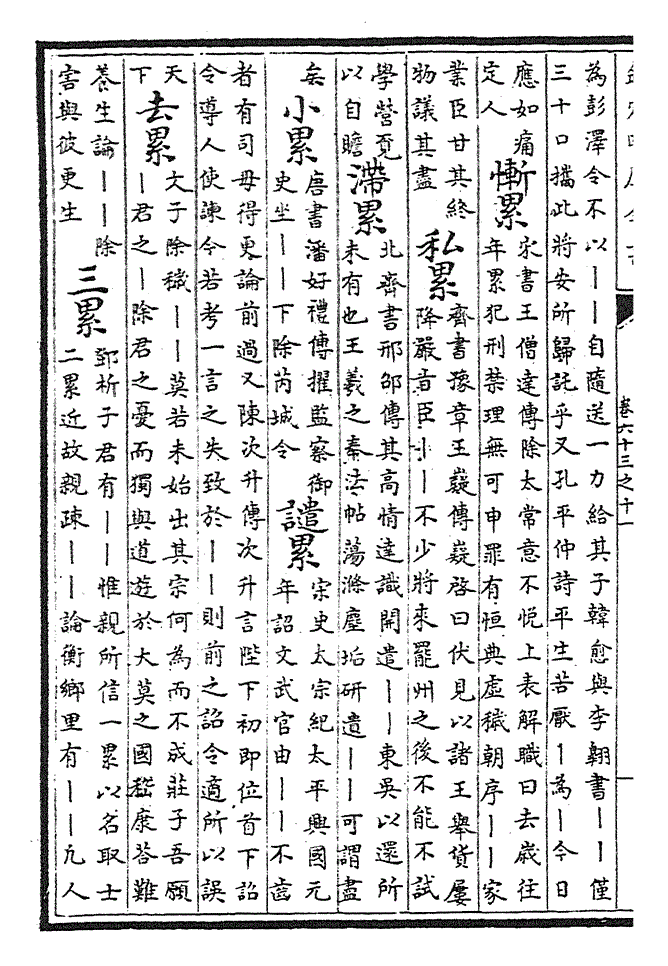 卷六十三之十一
為彭澤令不以丨丨自隨送一力給其子韓愈與李翺書丨丨僅
三十口攜此將安所歸託乎又孔平仲詩平生苦厭丨為丨今日
應如痛
定人
慚累
宋書王僧達傳除太常意不悅上表解職曰去歲往
年累犯刑禁理無可申罪有恒典虛穢朝序丨丨家
業臣甘其終
物議其盡
私累
齊書豫章王嶷傳嶷啓曰伏見以諸王舉貨屢
降嚴旨臣小丨不少將來罷州之後不能不試
學營覓
以自贍
滯累
北齊書邢邵傳其高情達識開遣丨丨東吳以還所
未有也王羲之秦法帖蕩滌塵垢研遣丨丨可謂盡
矣
小累
唐書潘好禮傳擢監察御
史坐丨丨下除芮城令
譴累
宋史太宗紀太平興國元
年詔文武官由丨丨不齒
者有司毋得更論前過又陳次升傳次升言陛下初即位首下詔
令導人使諫今若考一言之失致於丨丨則前之詔令適所以誤
天
下
去累
文子除穢丨丨莫若未始出其宗何為而不成莊子吾願
丨君之丨除君之憂而獨與道遊於大莫之國嵇康荅難
養生論丨丨除
害與彼更生
三累
鄧析子君有丨丨惟親所信一累以名取士
二累近故親疎丨丨論衡鄉里有丨丨九人